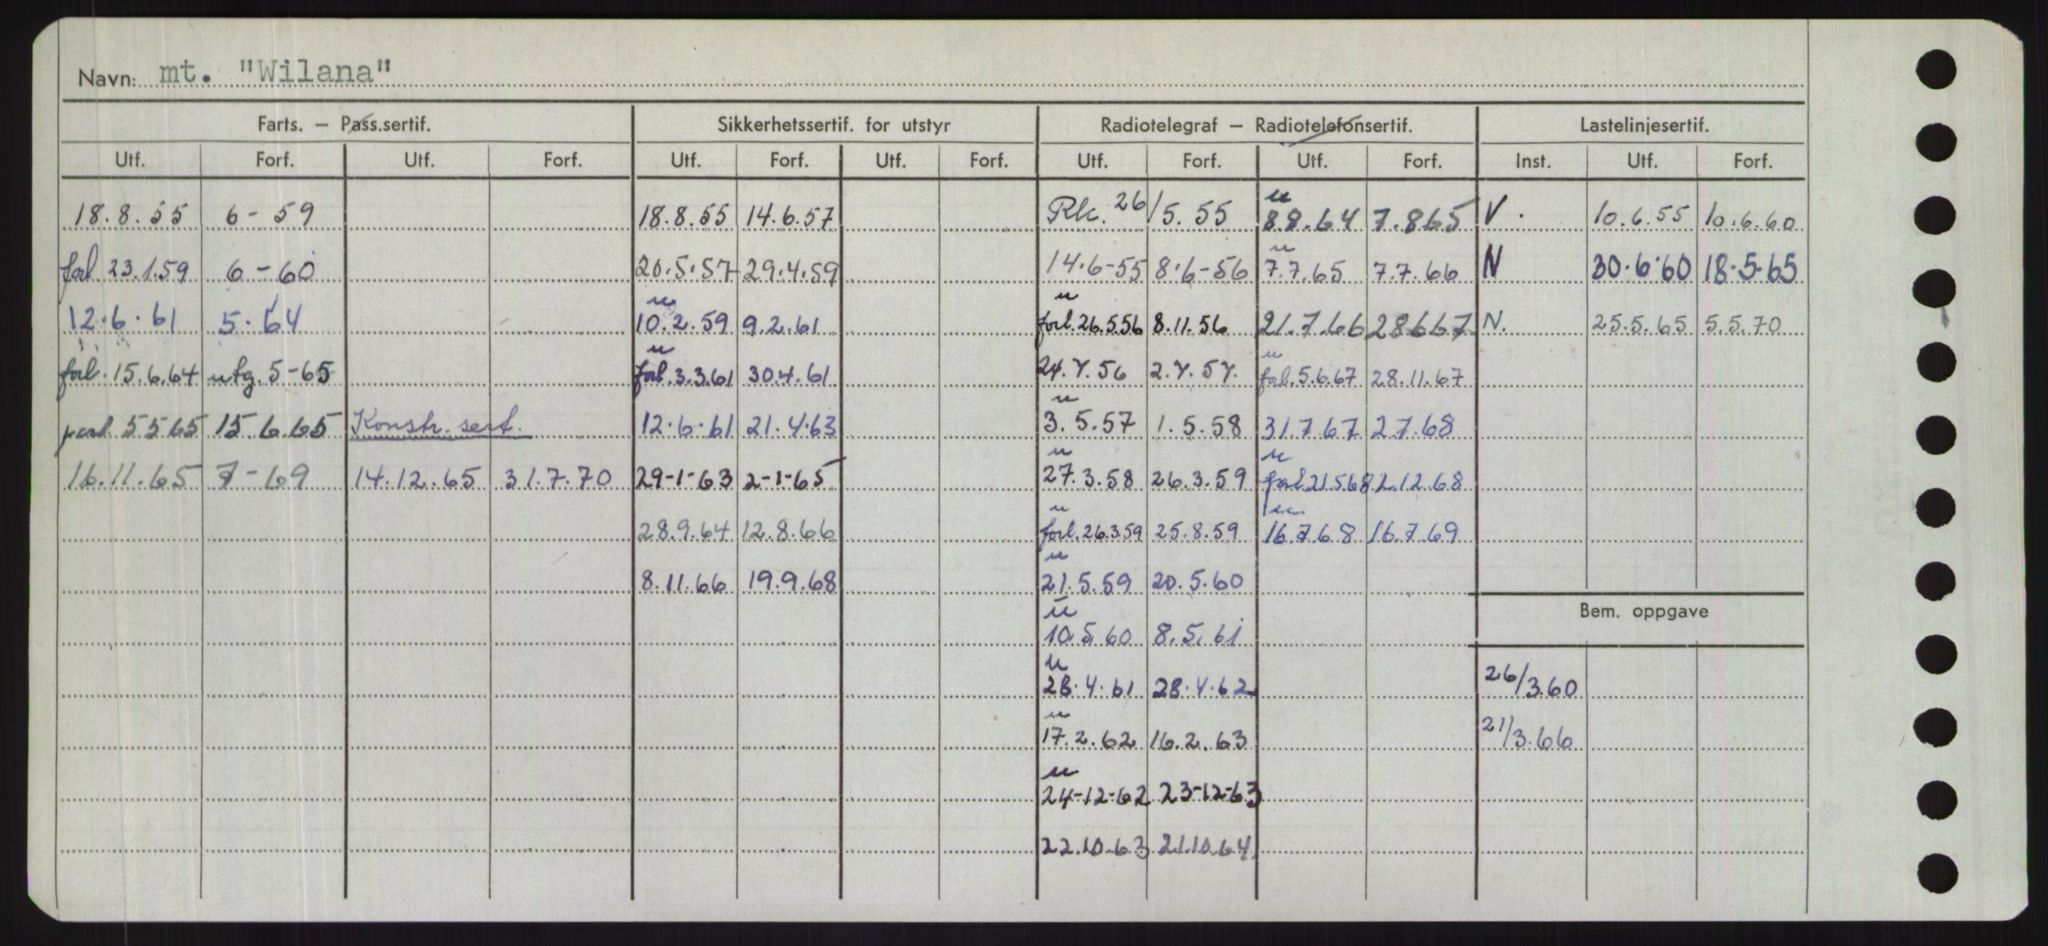 Navn: mt. "Wilana"
Farts. — Pass.sertif. Sikkerhetssertif. for utstyr Radiotelegraf — Radiotelefonsertif. Lastelinjesertif.
Utf. Forf. Utf. Forf. Utf. Forf. Utf. Forf. Utf. Forf. Utf. Forf. Inst. Utf. Forf.
u
18.8.55 6-59 18.8.55 14.6.57 Rk. 26/5.55 8.8.64 7.865 V. 10.6.55 10.6.60
u
forl 23.1.59 6-60 20.5.57 29.4.59 14.6-55 8.6-56 7.7.65 7.7.66 N 30.6.60 18.5.65
u u
12.6.61 5.64 10.2.59 9.2.61 forl. 26.556 8.11.56 21.7.66 28667 N. 25.5.65 5.5.70
u u
forl. 15.6.64 utg. 5-65 forl. 3.3.61 30.4.61 24.7.56 2.7.57. forl. 5.6.67 28.11.67
u
5565 15.6.65 Konstr. sert. 12.6.61 21.4.63 3.5.57 1.5.58 31.7.67 27.68
u u
16.11.65 7-69 14.12.65 31.7.70 29-1-63 2-1-65 27.3.58 26.3.59 forl 21568 2.12.68
u u
28.9.64 12.8.66 forl. 26.3.59 25.8.59 16.7.68 16.7.69
u
8.11.66 19.9.68 21.5.59 20.5.60
Bem. oppgave
u
10.5.60 8.5.61
u
28.4.61 28.4.62 26/3.60
u
17.2.62 16.2.63 21/3.66
u
24-12-62 23-12-63
22.10.63 21.10.64